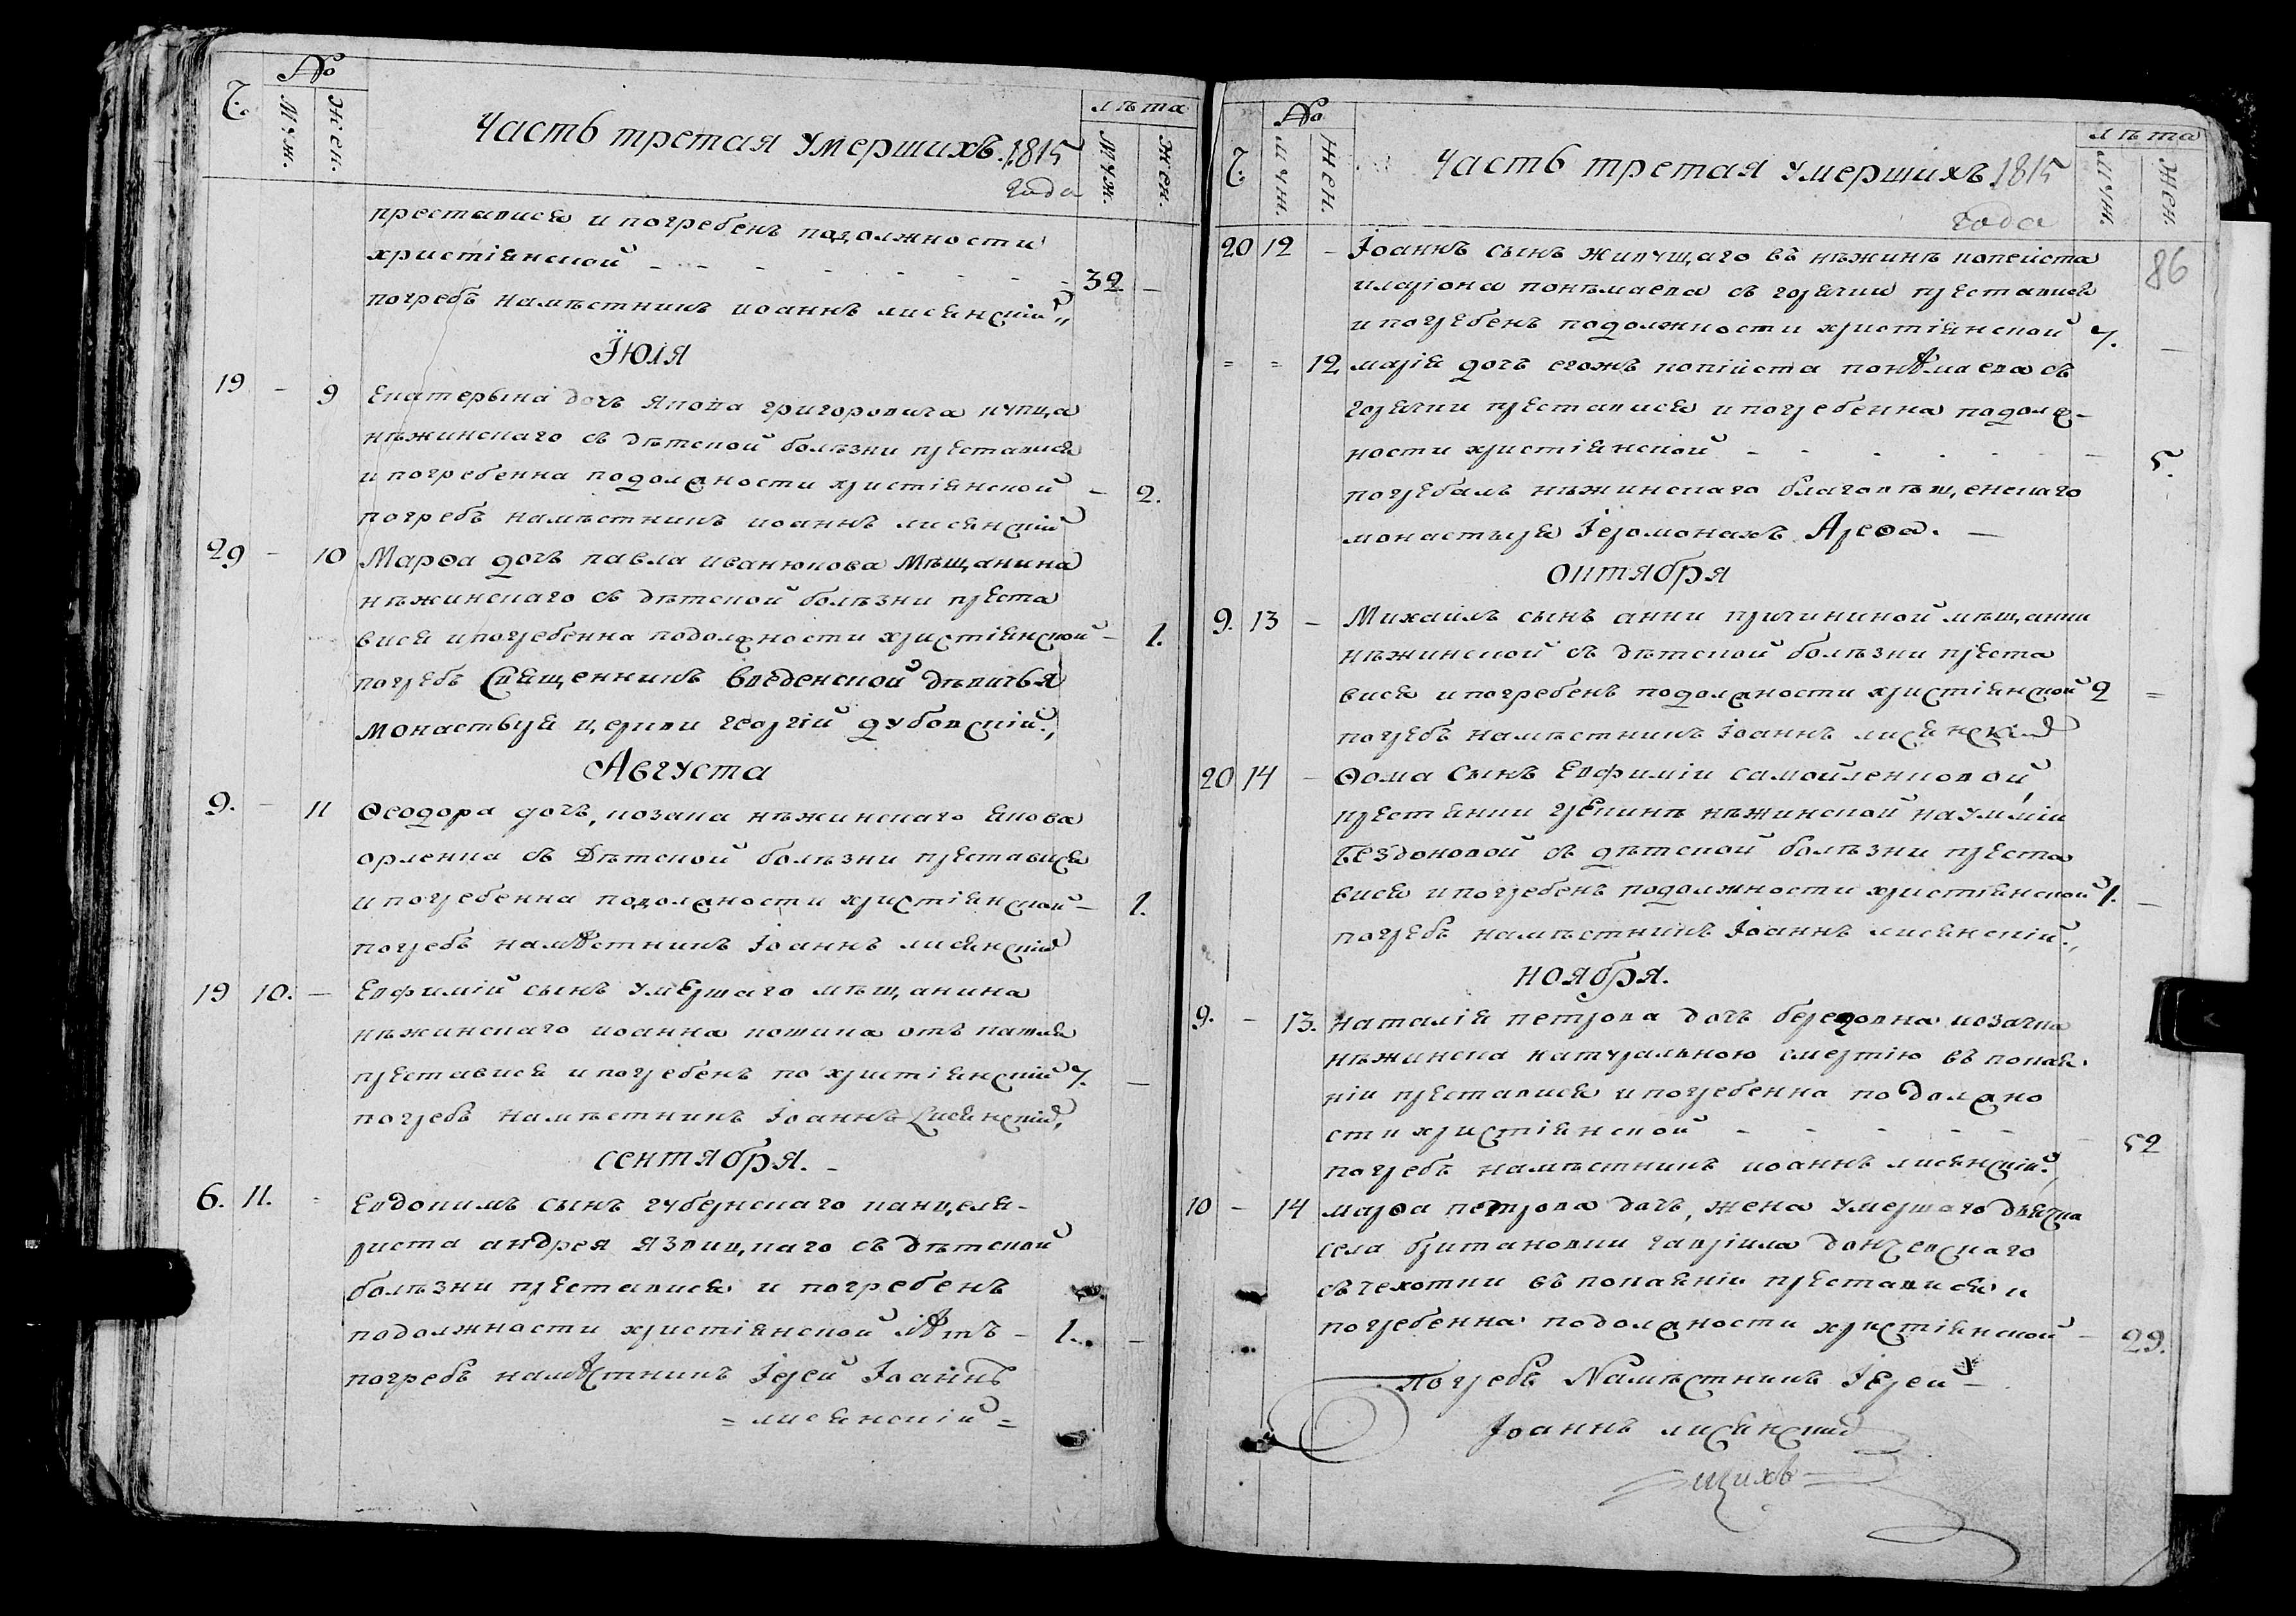 Ч.
№
Муж.
Жен.
Часть третая умершихъ 1815
года
лѣта
Муж.
Жен.
преставися и погребенъ подолжности
христіянской - - - - - - - 32 -
погребъ намѣстникъ иоаннъ лисянскій
Іюля
19 - 9 Екатерына дочъ якова григоровича купца
нѣжинскаго съ дѣтской болѣзни преставися
и погребенна подолжности христіянской - 2.
погребъ намѣстникъ иоаннъ лисянскій
29 - 10 Марѳа дочъ павла иванюкова Мѣщанина
нѣжинскаго съ дѣтской болѣзни преста
вися и погребенна подолжности христіянской - 1.
погребъ Священникъ введенской дѣвичья
монастыря церкви георгій дубовскій
Августа
9. - 11 Ѳеодора дочъ, козака нѣжинскаго якова
орленка съ дѣтской болѣзни преставися
и погребенна подолжности христіянской - 1.
погребъ намѣстникъ Іоаннъ лисянскій
19 10. - Евфимій сынъ умершаго мѣщанина
нѣжинскаго иоанна кошика отъ кашля
преставися и погребенъ по христіянскій 7. -
погребъ намѣстникъ Іоаннъ Лисянскій,
сентября. -
6. 11. - Евдокимъ сынъ губернскаго канцеля-
риста андрея язвицкаго съ дѣтской
болѣзни преставися и погребенъ
подолжности христіянской лѣтъ - 1. -
погребъ намѣстникъ Іерей Іоаннъ
= лисянскій =
Ч.
№
Муж.
Жен.
Часть третая умершихъ 1815
года
лѣта
Муж.
Жен.
86
20 12 - Іоаннъ сынъ живущаго въ нѣжинѣ копеиста
иларіона понѣмаева съ горячки преставися
и погребенъ подолжности христіянской 7. -
= = 12 марія дочъ егожъ копіиста понѣмаева съ
горячки преставися и погребенна подолж-
ности христіянской - - - - - - 5.
погребалъ нѣжинскаго благовѣщенскаго
монастыря Іеромонахъ Ареѳа. -
октября
9. 13 - Михаилъ сынъ анни мѣщанки
нѣжинской съ дѣтской болѣзни преста
вися и погребенъ подолжности христіянской 2 =
погребъ намѣстникъ Іоаннъ лисянскій
20 14 - Ѳома Сынъ Евфиміи самойленковой,
крестянки грекинѣ нѣжинской
Бездоновой съ дѣтской болѣзни преста
вися и погребенъ подолжности христіянской 1. -
погребъ намѣстникъ Іоаннъ лисянскій.
ноября.
9. - 13. наталія петрова дочъ козачка
нѣжинска натуральною смертію въ покая
ніи преставися и погребенна подолжно
сти христіянской - - - - - - 52
погребъ намѣстникъ иоаннъ лисянскій.
10 - 14 марѳа петрова дочъ, жена умершаго дьячка
села британовки гавріила данчевскаго
съ чехотки въ покаяніи преставися и
погребенна подолжности христіянской - 29.
Погребъ Намѣстникъ Іерей -
Іоаннъ лисянскій